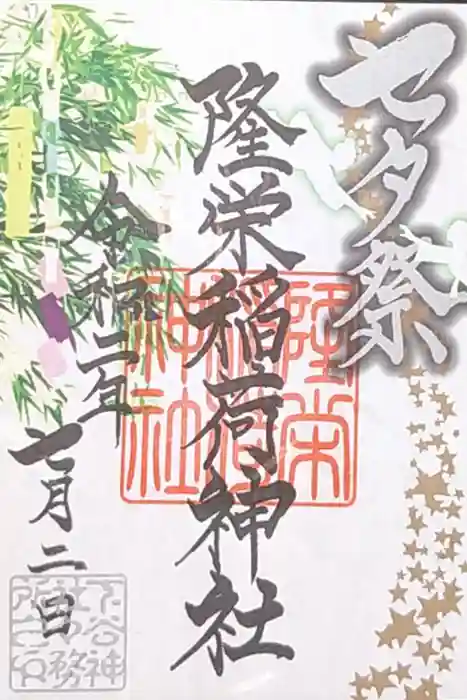 七夕祭
隆栄稲荷神社
隆栄
稲荷
神社
令和二年
七月二日
下谷神
社社務
所之印